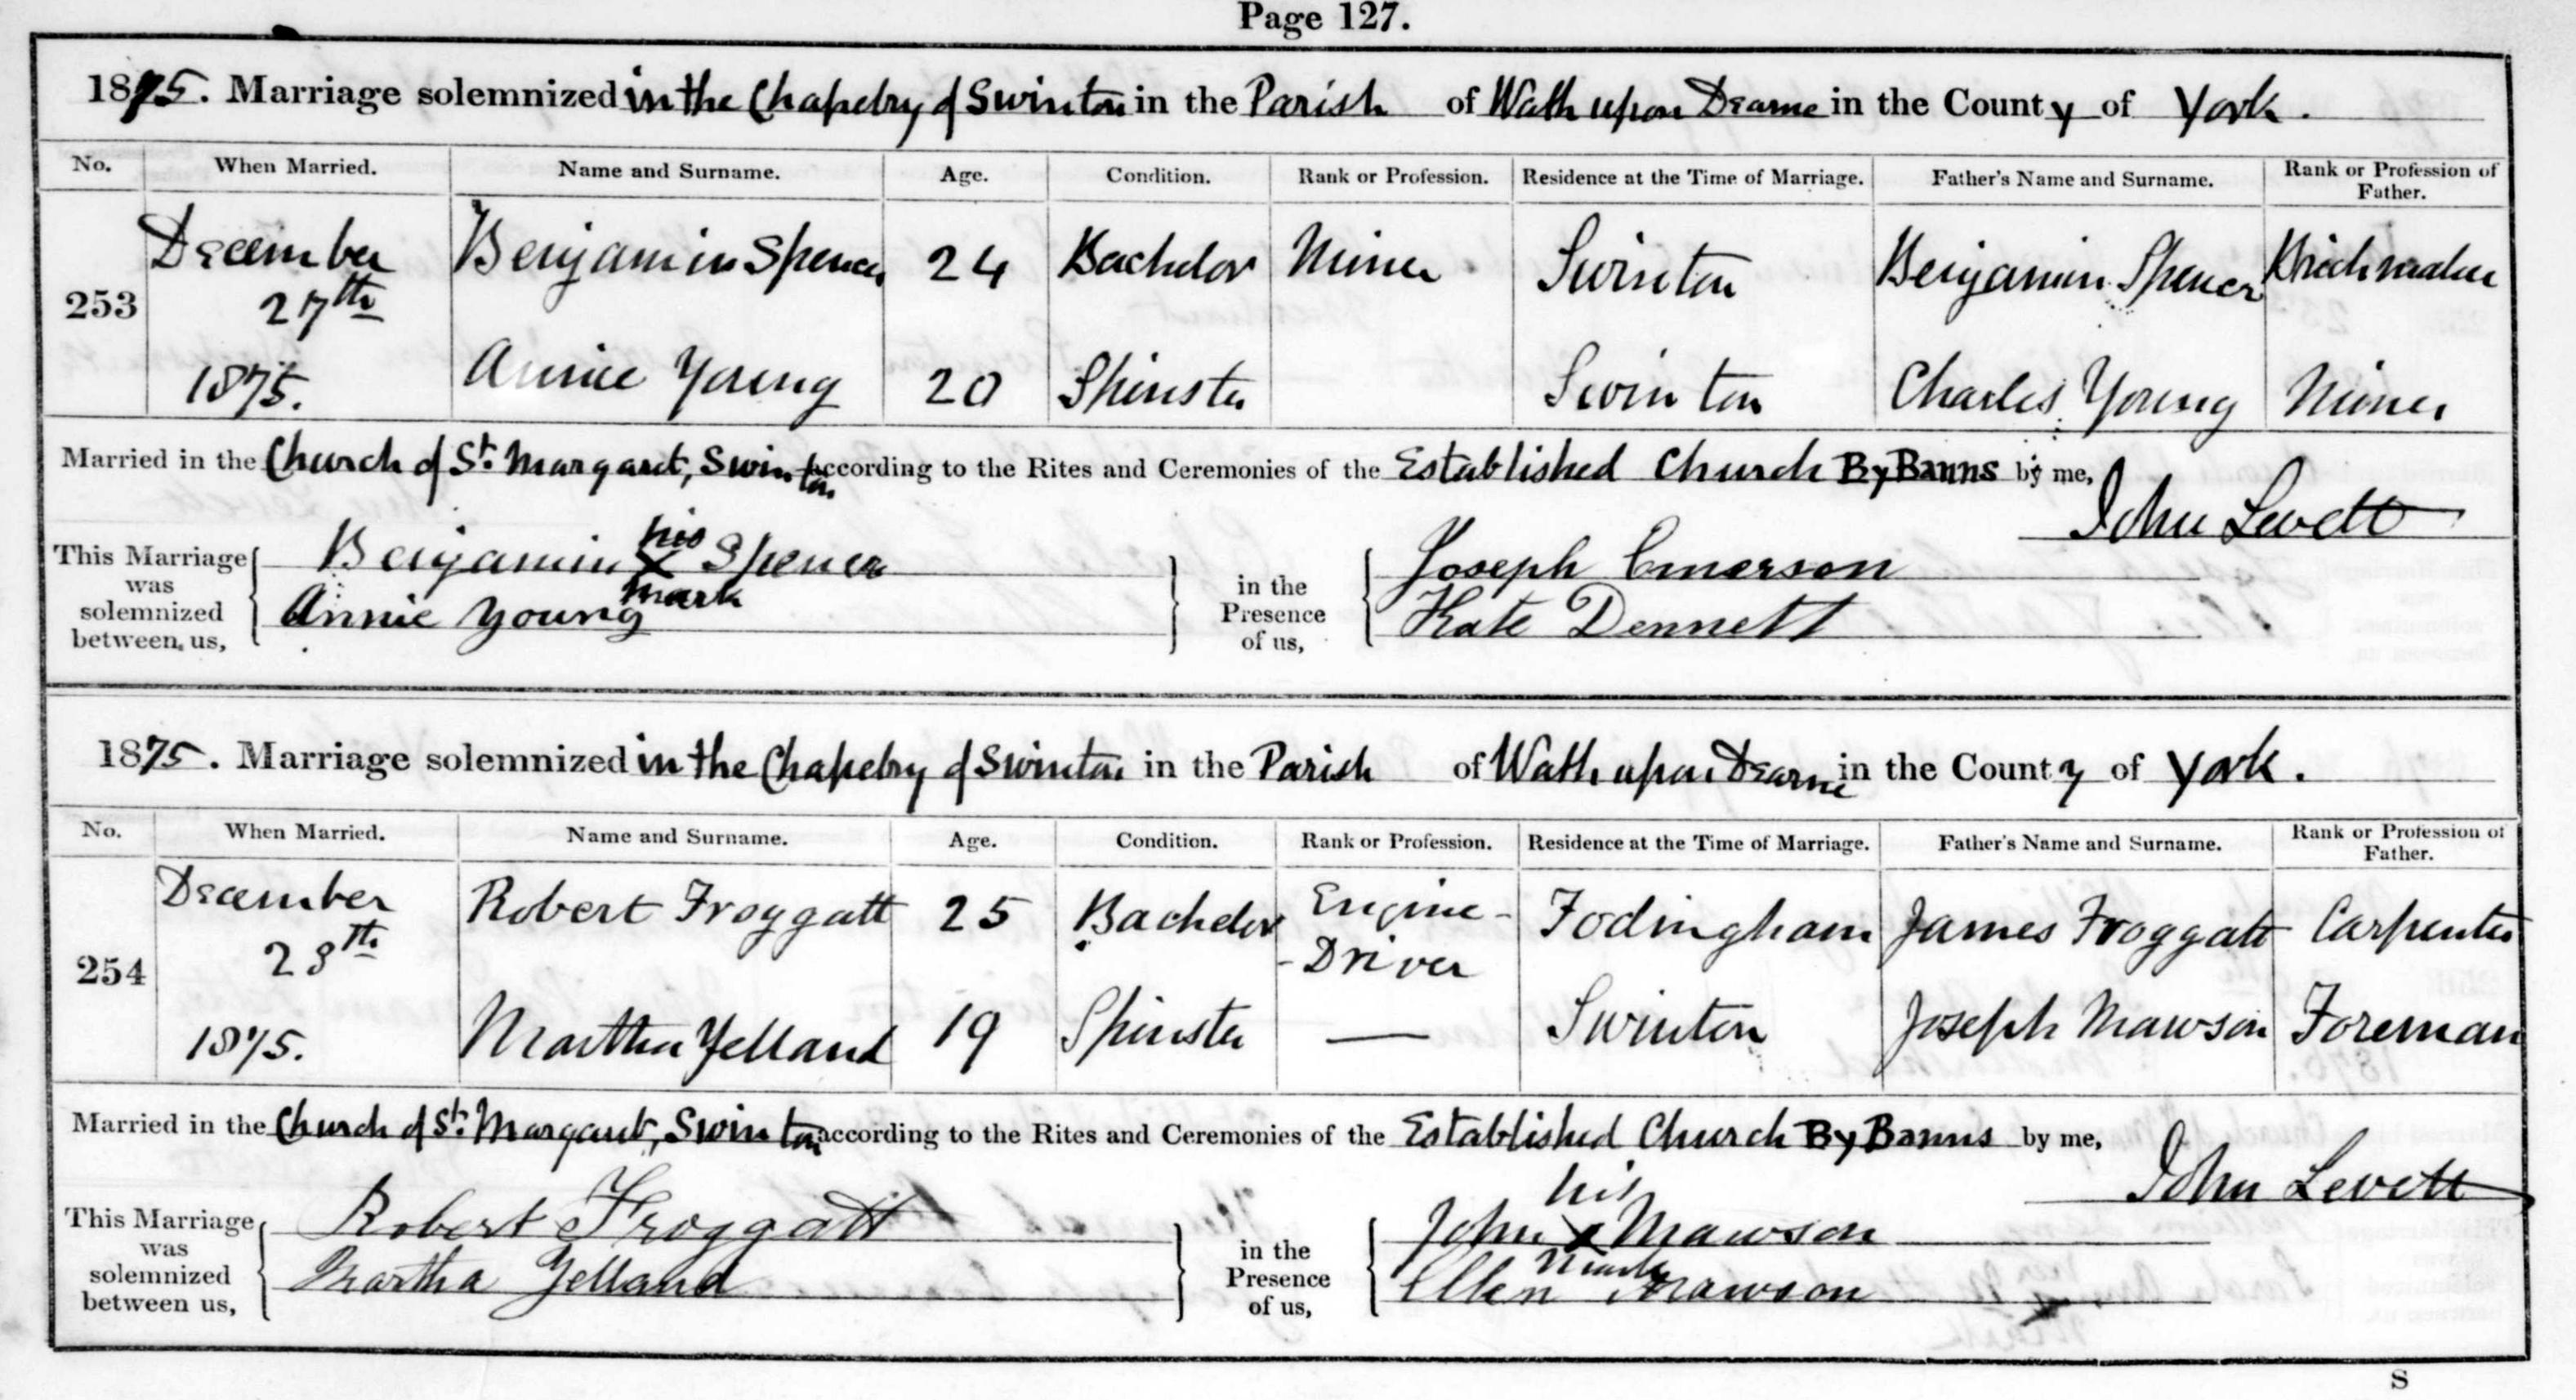 Page 127.
1875. Marriage solemnized in the Chapelry of Swinton in the Parish of Wath upon Dearne in the County of York.
No. When Married. Name and Surname. Age. Condition. Rank or Profession. Residence at the Time of Marriage. Father's Name and Surname. Rank or Profession of Father.
253 December 27th 1875. Benjamin Spencer 24 Bachelor Miner Swinton Benjamin Spencer Brickmaker
Annie Young 20 Spinster Swinton Charles Young Miner
Married in the Church of St. Margaret, Swinton according to the Rites and Ceremonies of the Established Church By Banns by me,
John Levett
This Marriage was solemnized between us, Benjamin his X mark Spencer
Annie Young
in the Presence of us, Joseph Emerson
Kate Dennett
1875. Marriage solemnized in the Chapelry of Swinton in the Parish of Wath upon Dearne in the County of York.
No. When Married. Name and Surname. Age. Condition. Rank or Profession. Residence at the Time of Marriage. Father's Name and Surname. Rank or Profession of Father.
254 December 28th 1875. Robert Froggatt 25 Bachelor Engine-Driver Fodingham James Froggatt Carpenter
Martha Yelland 19 Spinster — Swinton Joseph Mawson Foreman
Married in the Church of St. Margaret, Swinton according to the Rites and Ceremonies of the Established Church By Banns by me,
John Levett
This Marriage was solemnized between us, Robert Froggatt
Martha Yelland
in the Presence of us, John his X mark Mawson
Ellen Mawson
S